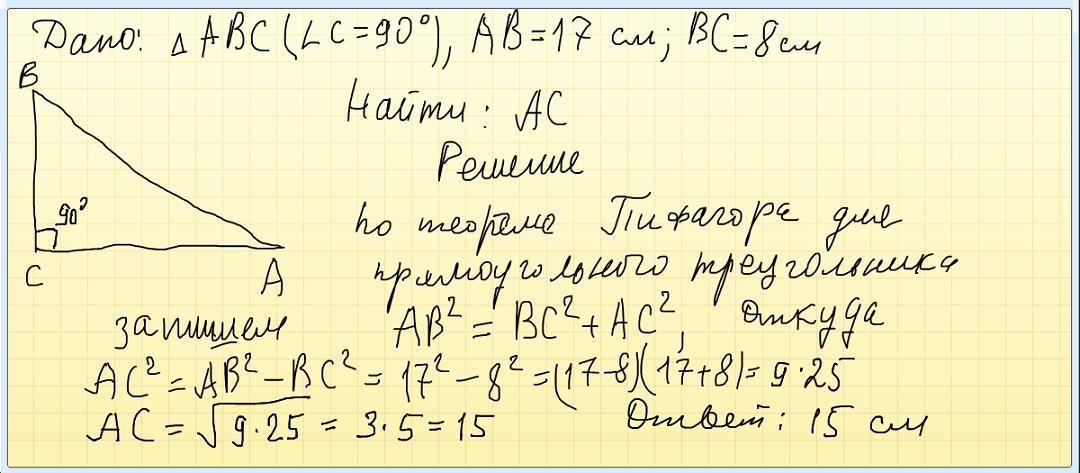 Дано: △ABC (∠C=90°), AB=17 см; BC=8см
B
Найти: AC
Решение
90°
По теореме Пифагора для
C
A
прямоугольного треугольника
запишем AB² = BC² + AC², откуда
AC² = AB² − BC² = 17² − 8² = (17−8)(17+8) = 9·25
AC = √9·25 = 3·5 = 15 Ответ: 15 см